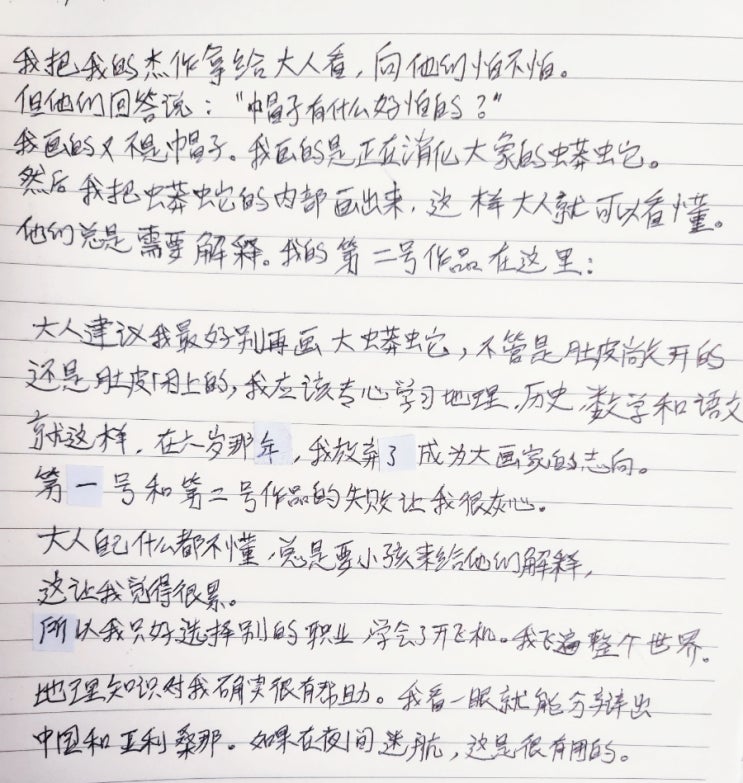 我把我的杰作拿给大人看，问他们怕不怕。
但他们回答说："帽子有什么好怕的？"
我画的又不是帽子。我画的是正在消化大象的蟒蛇。
然后我把蟒蛇的内部画出来，这样大人就可以看懂。
他们总是需要解释。我的第二号作品在这里：
大人建议我最好别再画大蟒蛇，不管是肚皮敞开的
还是肚皮闭上的，我应该专心学习地理、历史、数学和语文
就这样，在六岁那年，我放弃了成为大画家的志向。
第一号和第二号作品的失败让我很灰心。
大人自己什么都不懂，总是要小孩来给他们解释，
这让我觉得很累。
所以我只好选择别的职业，学会了开飞机。我飞遍整个世界。
地理知识对我确实很有帮助。我看一眼就能分辨出
中国和亚利桑那。如果在夜间迷航，这是很有用的。